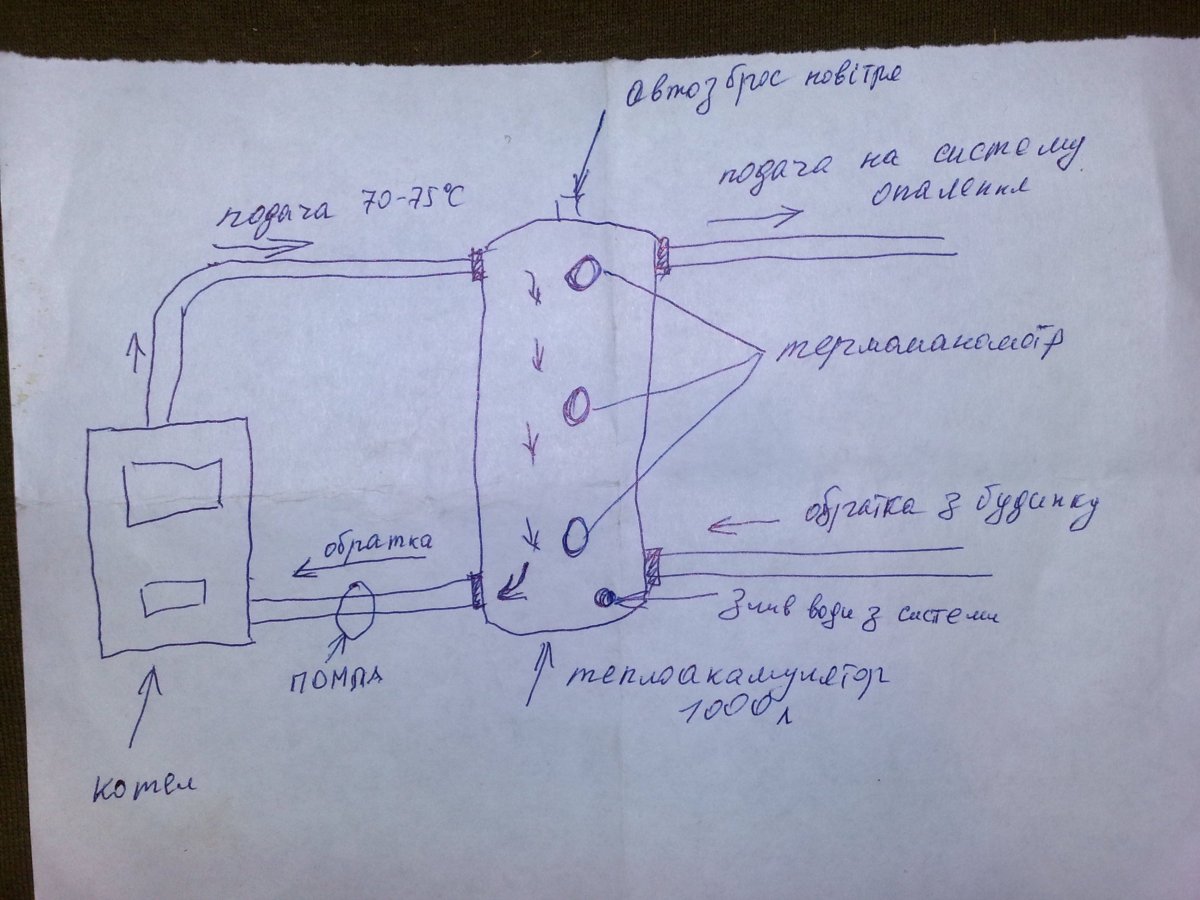 Автозброс повітря
подача на систему
опалення
подача 70-75°С
термоманометр
обратка з будинку
обратка
Злив води з системи
ПОМПА
теплоакамулятор
1000л
котел